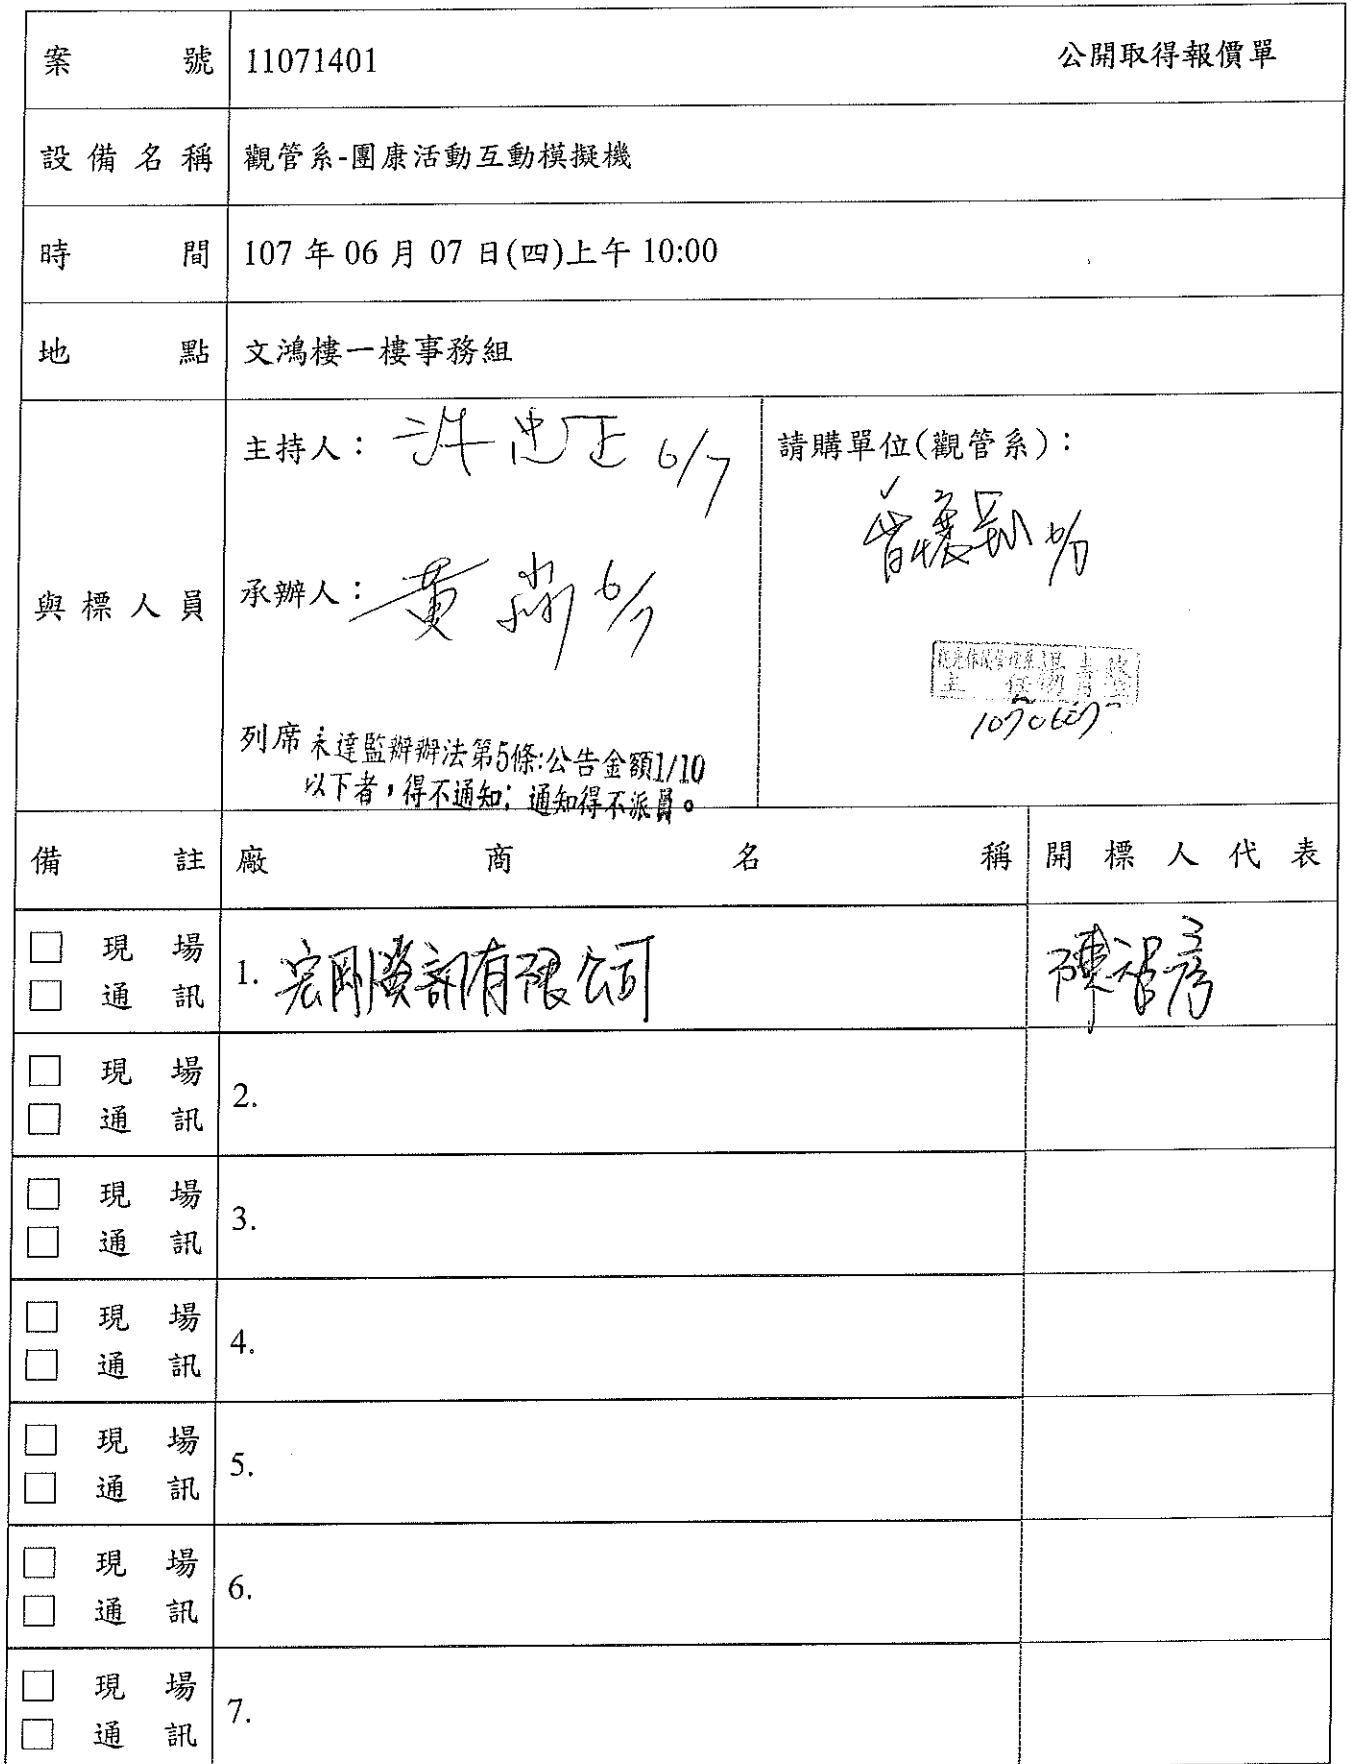 案號 11071401 公開取得報價單
設備名稱 觀管系-團康活動互動模擬機
時間 107 年 06 月 07 日(四)上午 10:00
地點 文鴻樓一樓事務組
與標人員
主持人： 許忠正 6/7
請購單位(觀管系)：
6/7
承辦人： 黃 6/7
1070607
列席 未達監辦辦法第5條:公告金額1/10
以下者，得不通知; 通知得不派員。
備註 廠商名稱 開標人代表
□ 現場
□ 通訊
1. 宏剛資訊有限公司 陳
□ 現場
□ 通訊
2.
□ 現場
□ 通訊
3.
□ 現場
□ 通訊
4.
□ 現場
□ 通訊
5.
□ 現場
□ 通訊
6.
□ 現場
□ 通訊
7.